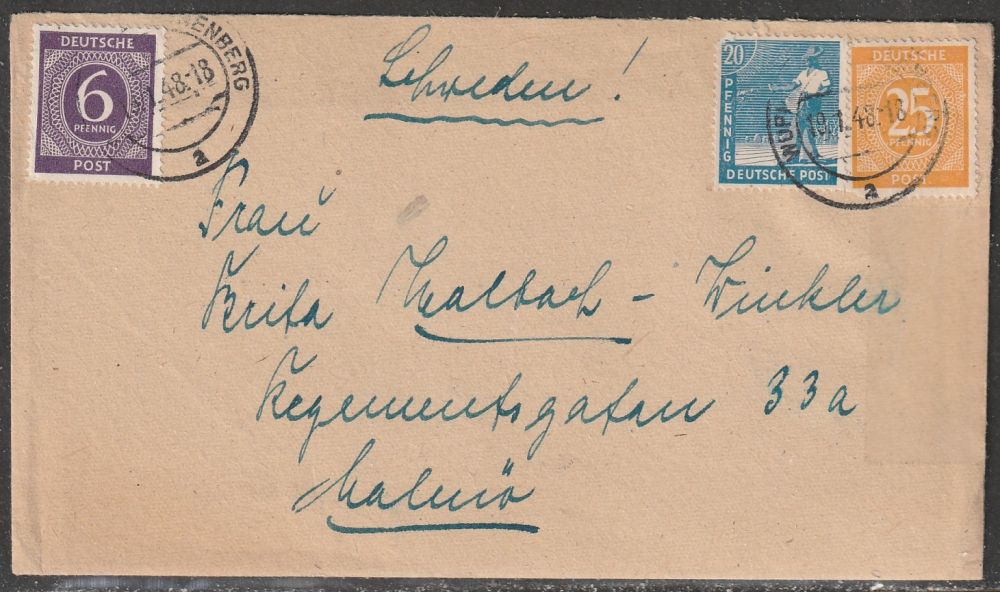 DEUTSCHE
6
PFENNIG
POST
NENBERG
48.-18
a
Schweden!
20
PFENNIG
DEUTSCHE POST
DEUTSCHE
25
PFENNIG
POST
WUPP
19.1.48.-18
a
Frau
Brita Malbach - Winkler
Regementsgatan 33a
Malmö